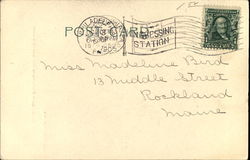 POST CARD
PHILADELPHIA
STATION
Miss Madeline Bird
13 Middle Street
Rockland
Maine